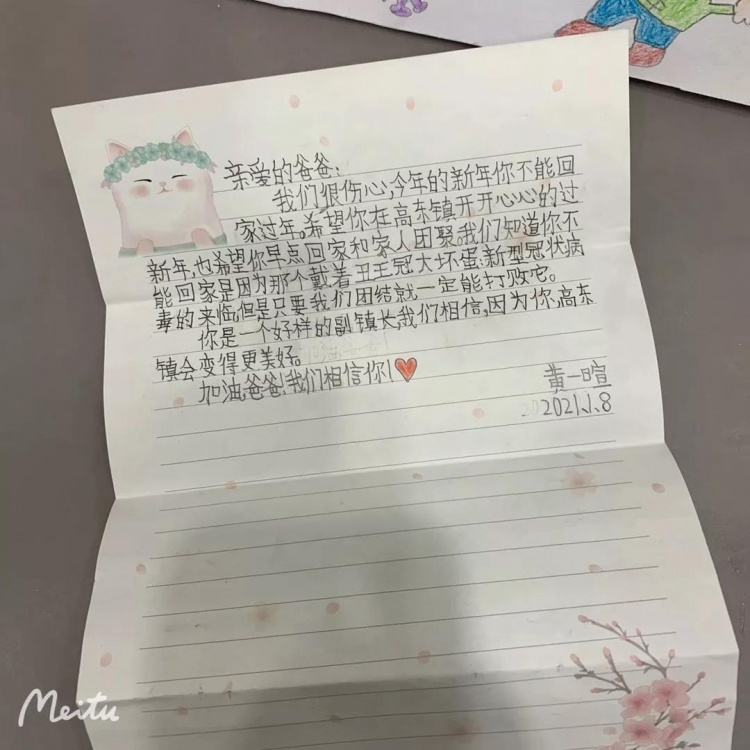 亲爱的爸爸:
我们很伤心,今年的新年你不能回
家过年。希望你在高东镇开开心心的过
新年,也希望你早点回家和家人团聚。我们知道你不
能回家是因为那个戴着丑王冠大坏蛋:新型冠状病
毒的来临,但是只要我们团结就一定能打败它。
你是一个好样的副镇长,我们相信,因为你,高东
镇会变得更美好。
加油,爸爸!我们相信你!
黄一暄
2021.1.8
Meitu